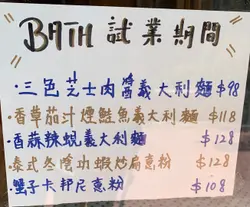 BATH 試業期間
·三色芝士肉醬義大利麵 $98
·香草茄汁煙鮭魚義大利麵 $118
·香蒜辣蜆義大利麵 $128
·泰式冬陰功蝦炒扁意粉 $128
·蟹子卡邦尼意粉 $108